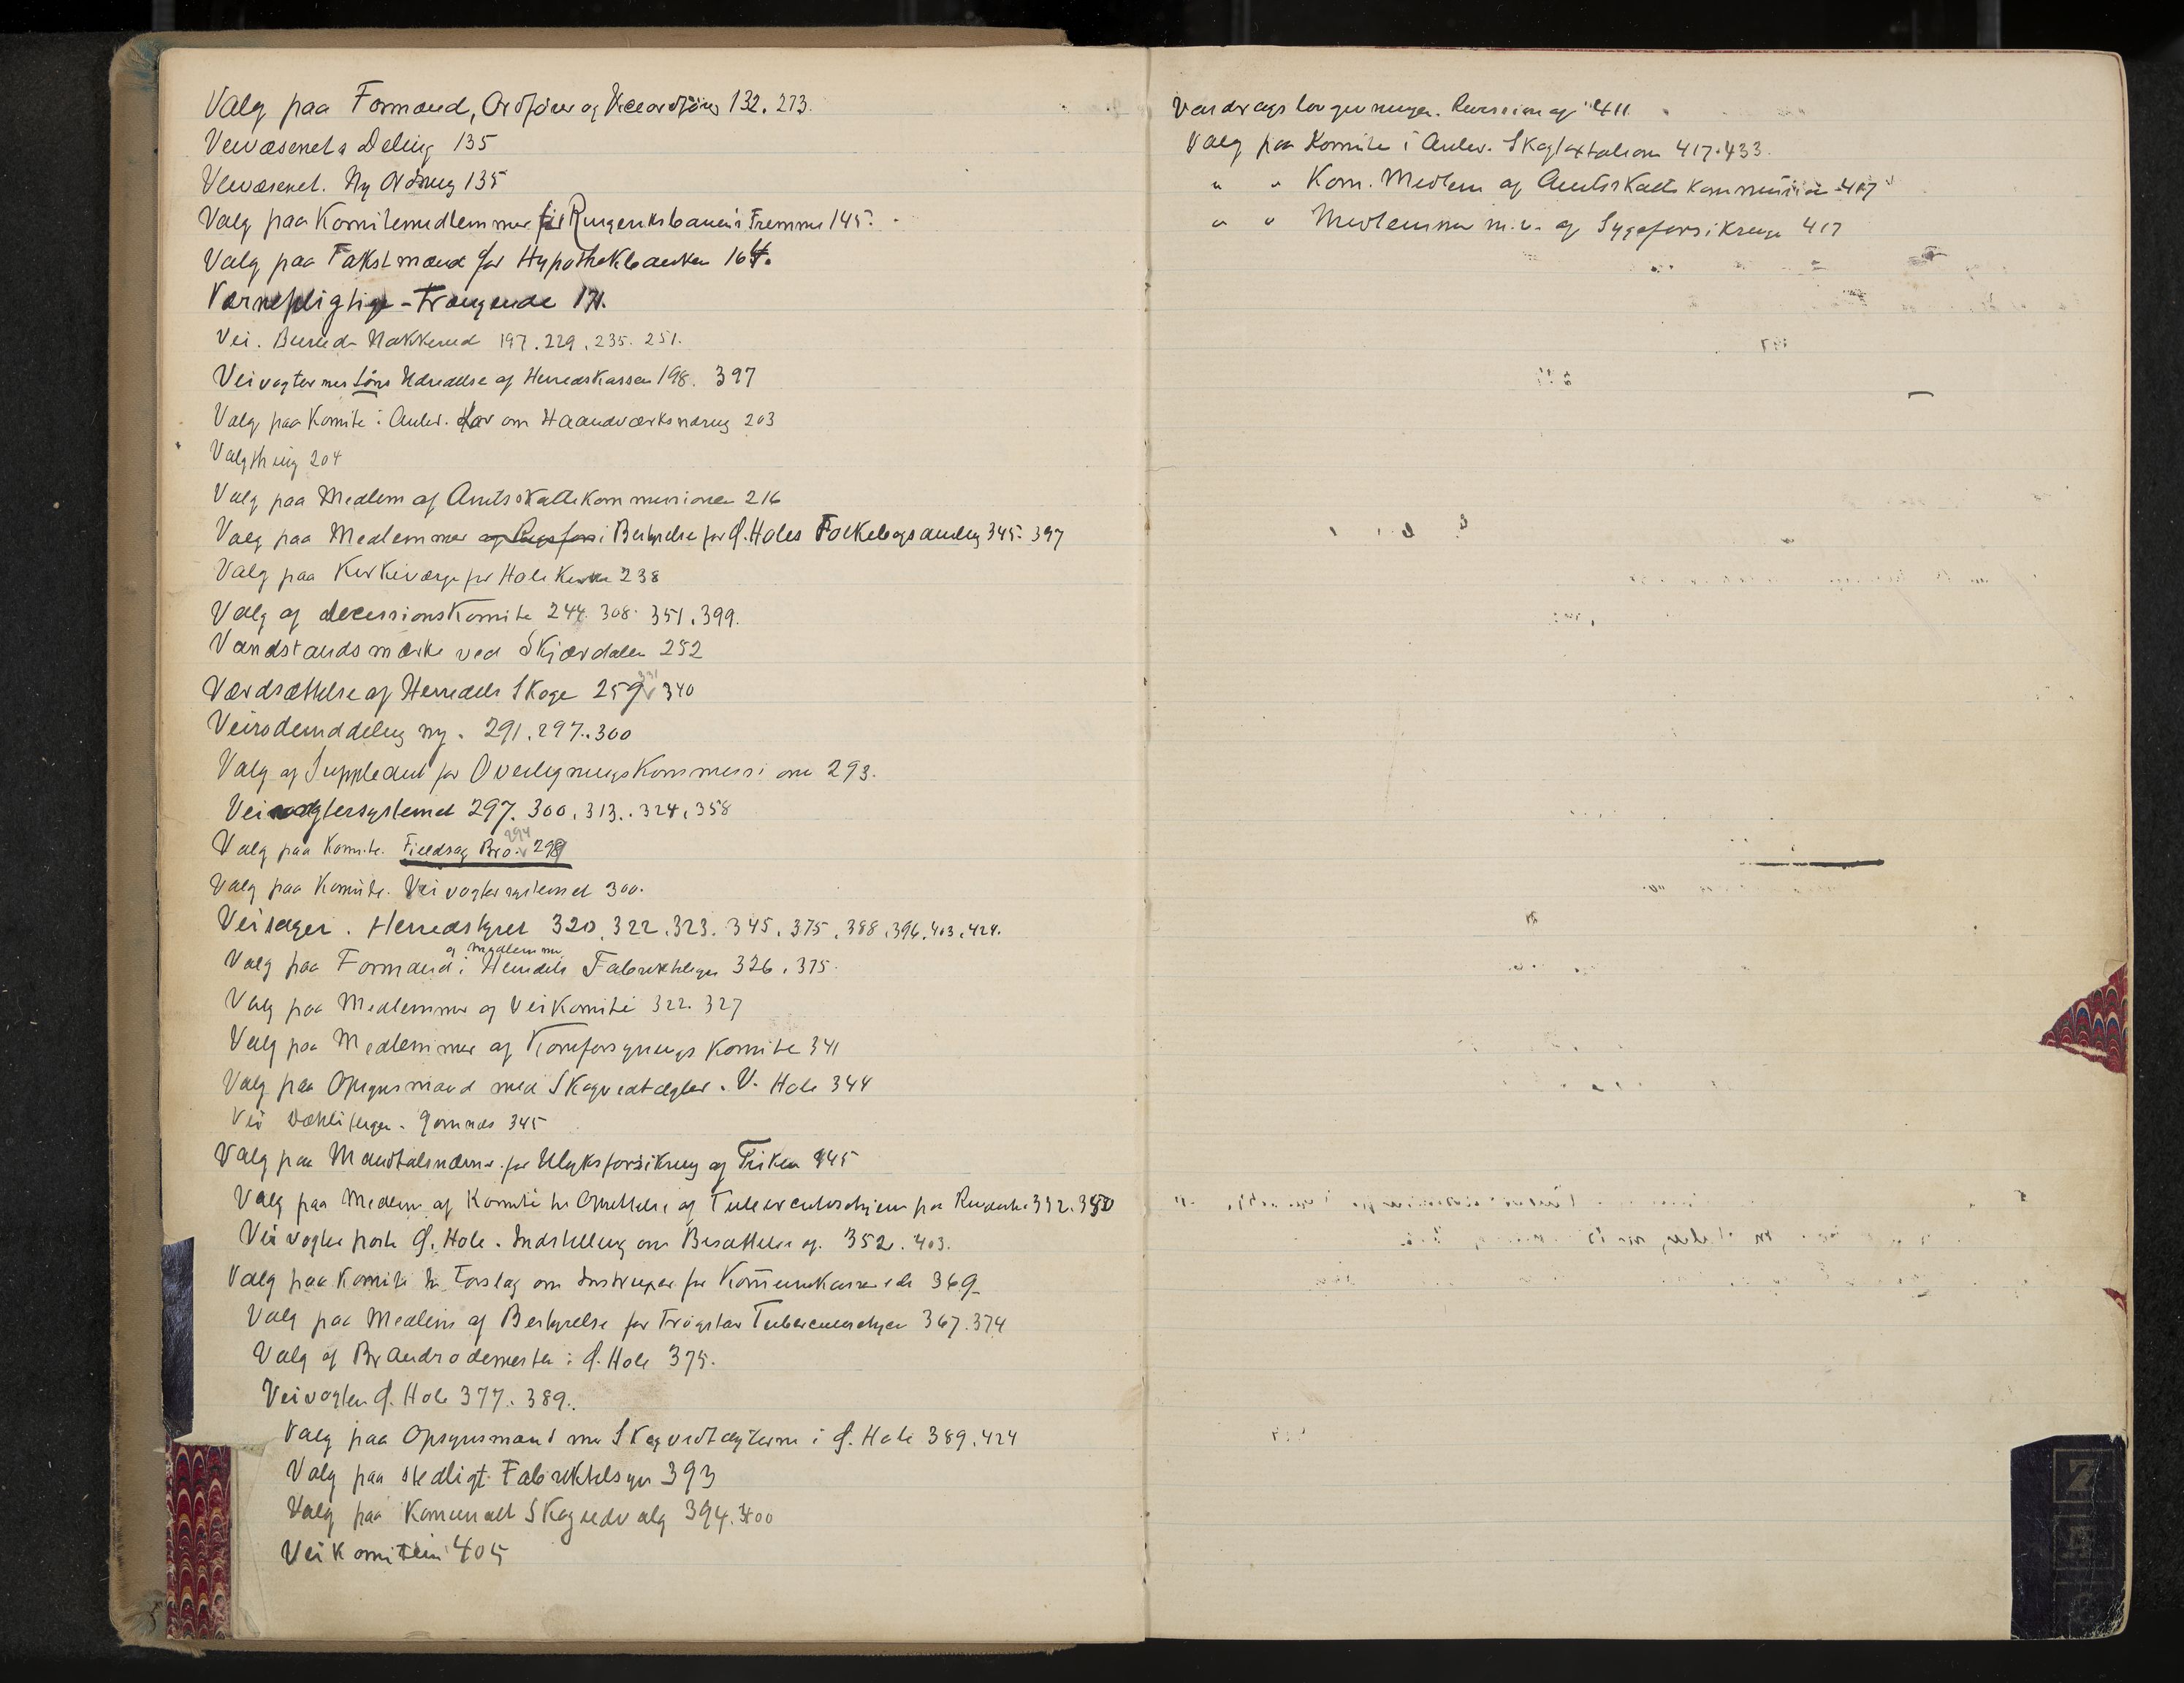 Valg paa Formænd, Ordfører og Viceordfører 132. 273.
Veivæsenets Deling 135
Veivæsenet. Ny Ordning 135
Valg paa Komitemedlemmer for Ringeriksbanens Fremme 145.
Valg paa Takstmænd for Hypothekbanken 164.
Værnepligtige - Trængende 171.
Vei. Burud - Nakkerud 197. 229. 235. 251.
Veivogternes Løns Udredelse af Herredskassen 198. 397
Valg paa Komite i Anled. Lov om Haandværksnæring 203
Valgthing 204
Valg paa Medlem af Amtsskattekommissionen 216
Valg paa Medlemmer i Bestyrelse for Ø. Holes Folkebogsamling 345. 397
Valg paa Kirkeværge for Hole Kirke 238
Valg af Decisionskomite 244. 308. 351. 399.
Vandstandsmærke ved Skjærdalen 252
Værdsættelse af Herredets Skoge 259 341 340
Veirodeinddeling ny. 291. 297. 300
Valg af Suppleant for Overligningskommission 293.
Veivogtersystemet 297. 300. 313. 324. 358
Valg paa Komite. Bro. 294 298
Valg paa Komite. Veivogtersystemet 300.
Veisager. Herredstyret 320. 322. 323. 345. 375. 388. 396. 403. 424.
Valg paa Formand og Medlemmer i Herredets Fabriktilsyn 326. 375.
Valg paa Medlemmer af Veikomite 322. 327
Valg paa Medlemmer af Kornforsynings Komite 341
Valg paa Opsynsmænd med Skogvedtægter. V. Hole 344
Vei Gomnæs 345
Valg paa Mandtalsnævn for Ulykesforsikring af Fiskere 345
Valg paa Medlem af Komite til Oprettelse af Tuberculosehjem paa Ringerike 352. 350
Veivogterposter Ø. Hole. Indstilling om Besættelse af. 352. 403.
Valg paa Komite til Forslag om Instruxer for Kommunekasserer etc 369
Valg paa Medlem af Bestyrelse for Tuberculosehjem 367. 374
Valg af Brandrodemester i Ø. Hole 375.
Veivogter Ø. Hole 377. 389.
Valg paa Opsynsmænd med Skogvedtægterne i Ø. Hole 389. 424
Valg paa stedligt Fabriktilsyn 393
Valg paa Komunalt Skogudvalg 394. 400
Veikomiteen 405
Vandrags lovgivningen. Revision af 411
Valg paa Komite i Anled. Skogtaxtation 417. 433.
" " Kom. Medlem af Amtsskattekommission 417
" " Medlemmer m.v. af Sygeforsikringe 417